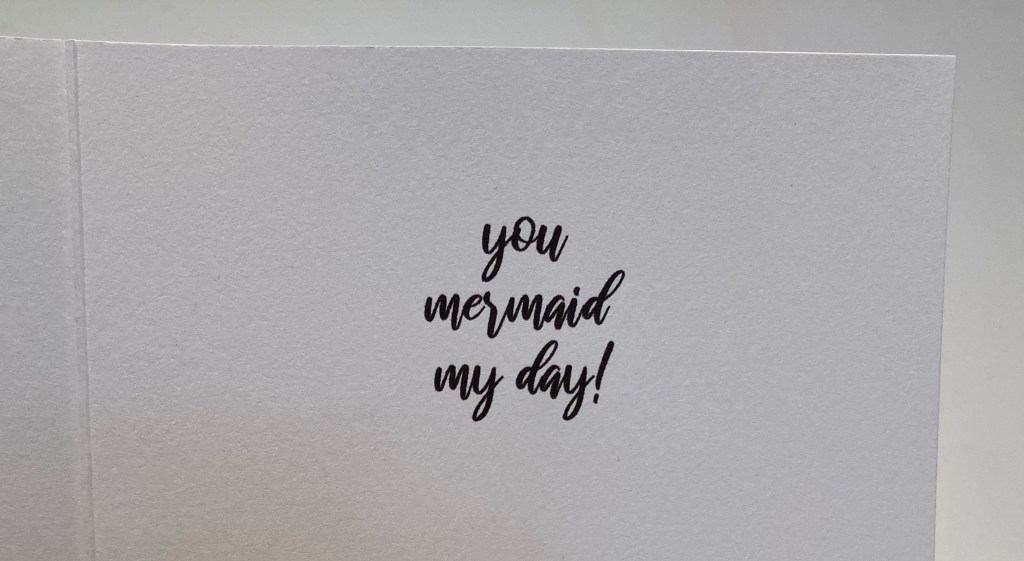 you
mermaid
my day!